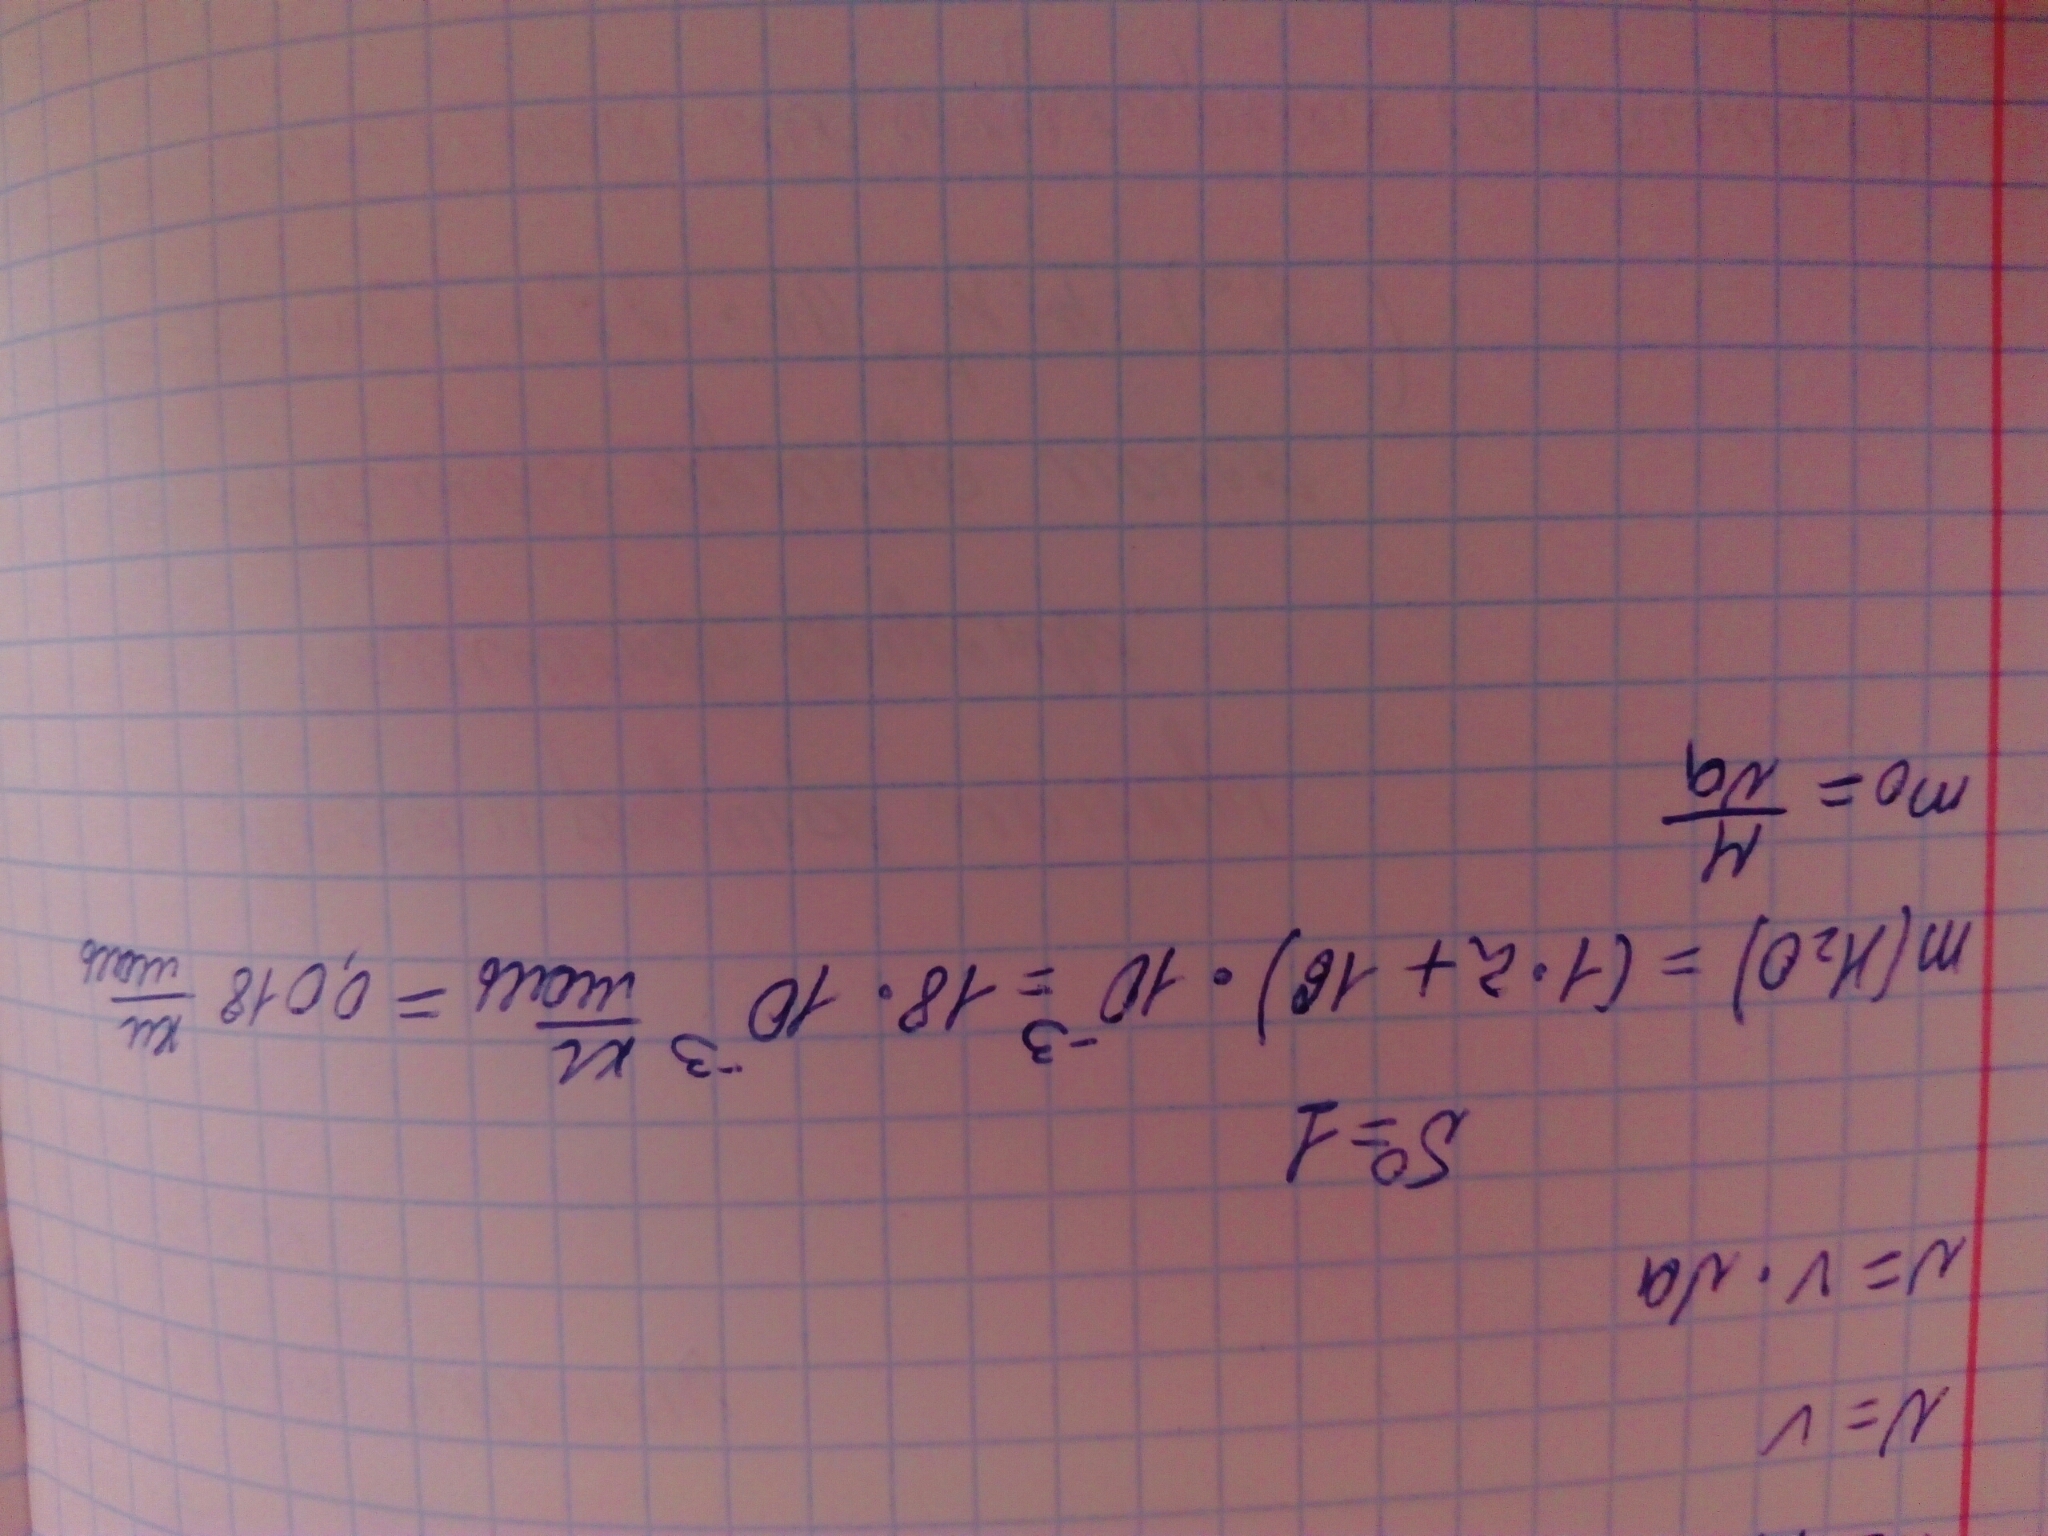 N=v
N=v·Na
S0=1
m(H₂O) = (1·2+16)·10⁻³ = 18·10⁻³ кг/моль = 0,018 кг/моль
m0 = M/Na